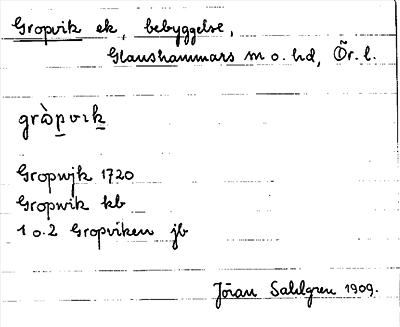 Gropvik ek, bebyggelse,
Glanshammars sn o. hd, Ör. l.
grὼpvɩk
Gropwjk 1720
Gropwik kb
1 o. 2 Gropviken jb
Jöran Sahlgren 1909.